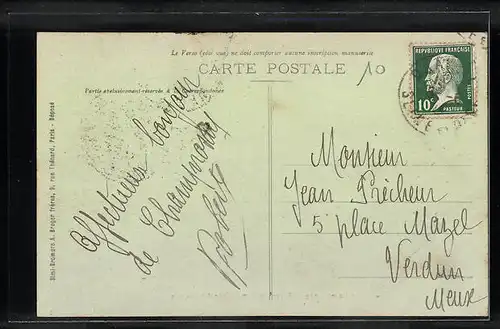 Le Verso (côté vue) ne doit comporter aucune inscription manuscrite
CARTE POSTALE
10
Partie exclusivement réservée à la Correspondance
RÉPUBLIQUE FRANÇAISE
POSTES
10c
PASTEUR
Affectueux bonjour
de Chammonix
Robert
Monsieur
Jean Pêcheur
5 place Mazel
Verdun
Meuse
Simi-Bromure A. Breger frères, 9, rue Thénard, Paris - Déposé